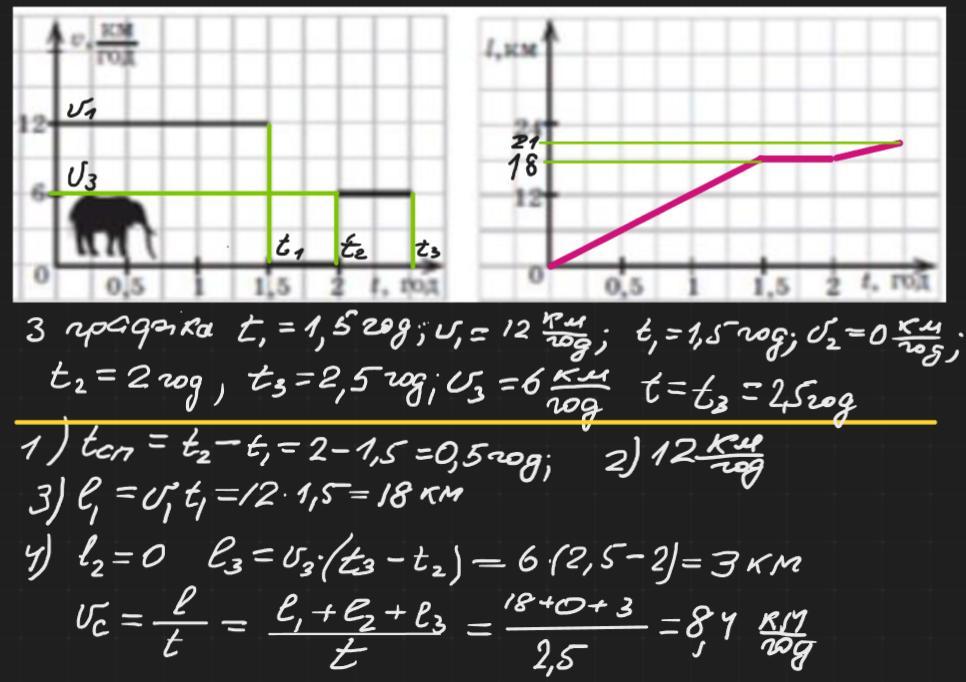 v, км/год
l, км
v₁
12
24
21
v₃
18
6
12
t₁ t₂ t₃
0 0,5 1 1,5 2 t, год
0 0,5 1 1,5 2 t, год
З графіка t₁ = 1,5 год; v₁ = 12 км/год; t₁ = 1,5 год; v₂ = 0 км/год;
t₂ = 2 год, t₃ = 2,5 год; v₃ = 6 км/год t = t₃ = 2,5 год
1) tсп = t₂ − t₁ = 2 − 1,5 = 0,5 год; 2) 12 км/год
3) l₁ = v₁t₁ = 12 · 1,5 = 18 км
4) l₂ = 0 l₃ = v₃ · (t₃ − t₂) = 6 · (2,5 − 2) = 3 км
vс = l/t = (l₁ + l₂ + l₃)/t = (18 + 0 + 3)/2,5 = 8,4 км/год